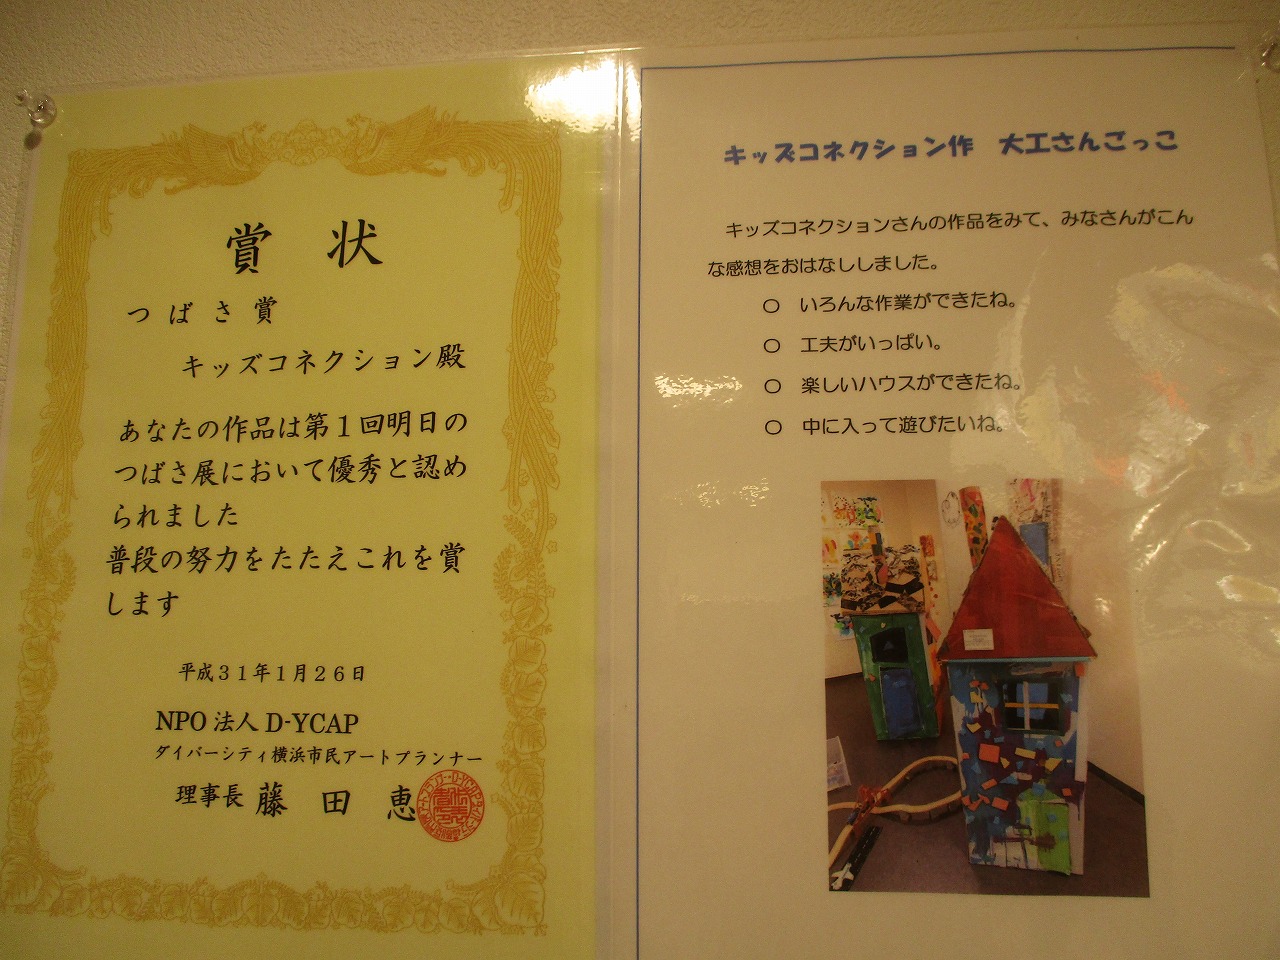 賞状
つばさ賞
キッズコネクション殿
あなたの作品は第１回明日の
つばさ展において優秀と認め
られました
普段の努力をたたえこれを賞
します
平成３１年１月２６日
NPO 法人 D-YCAP
ダイバーシティ横浜市民アートプランナー
理事長 藤田 恵
キッズコネクション作　大工さんごっこ
キッズコネクションさんの作品をみて、みなさんがこん
な感想をおはなししました。
○　いろんな作業ができたね。
○　工夫がいっぱい。
○　楽しいハウスができたね。
○　中に入って遊びたいね。